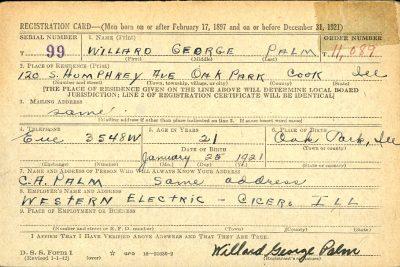 REGISTRATION CARD—(Men born on or after February 17, 1897 and on or before December 31, 1921)
SERIAL NUMBER 1. NAME (Print) ORDER NUMBER
T 99 WILLARD GEORGE PALM T 11,089
(First) (Middle) (Last)
2. PLACE OF RESIDENCE (Print)
120 S. HUMPHREY AVE OAK PARK COOK Ill
(Number and street) (Town, township, village, or city) (County) (State)
[THE PLACE OF RESIDENCE GIVEN ON THE LINE ABOVE WILL DETERMINE LOCAL BOARD
JURISDICTION; LINE 2 OF REGISTRATION CERTIFICATE WILL BE IDENTICAL]
3. MAILING ADDRESS
same
[Mailing address if other than place indicated on line 2. If same insert word same]
4. TELEPHONE 5. AGE IN YEARS 6. PLACE OF BIRTH
Euc 3548W 21 Oak Park, Ill
DATE OF BIRTH (Town or county)
January 25 1921
(Exchange) (Number) (Mo.) (Day) (Yr.) (State or country)
7. NAME AND ADDRESS OF PERSON WHO WILL ALWAYS KNOW YOUR ADDRESS
C.A. PALM same address
8. EMPLOYER'S NAME AND ADDRESS
WESTERN ELECTRIC - CICERO ILL
9. PLACE OF EMPLOYMENT OR BUSINESS
(Number and street or R. F. D. number) (Town) (County) (State)
I AFFIRM THAT I HAVE VERIFIED ABOVE ANSWERS AND THAT THEY ARE TRUE.
D. S. S. Form 1
(Revised 1-1-42) (over) GPO Willard George Palm
(Registrant's signature)